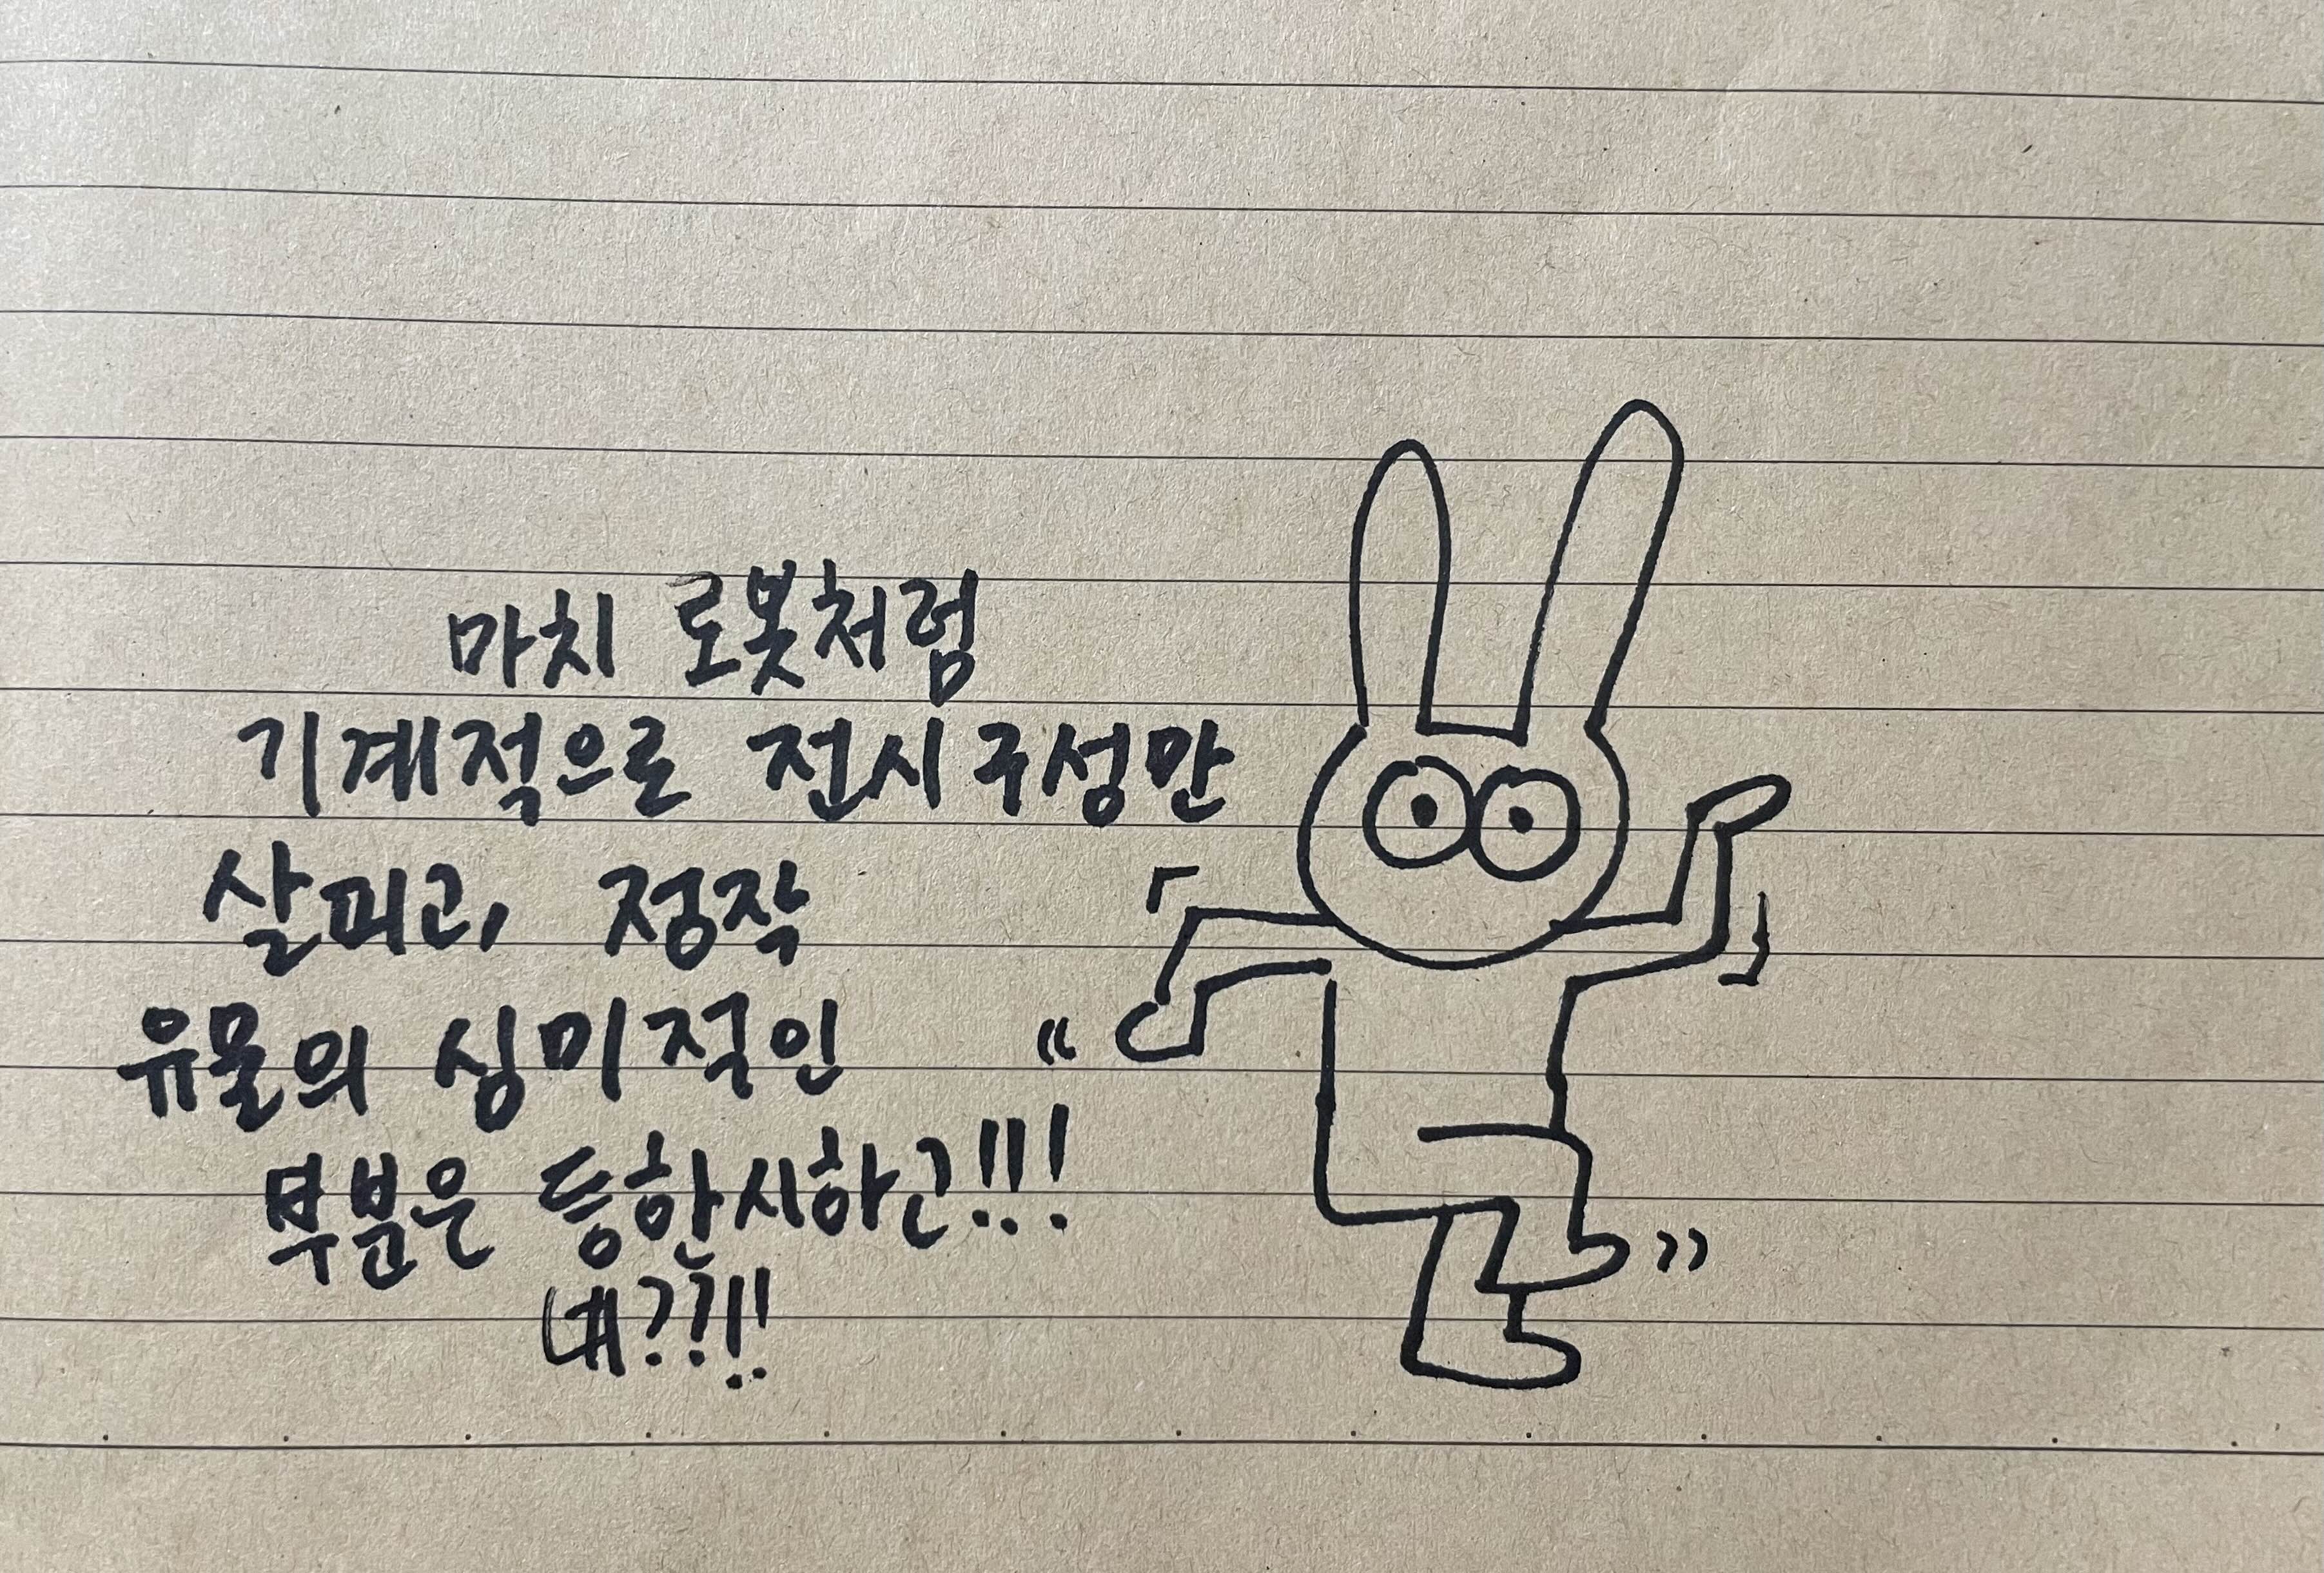 마치 로봇처럼
기계적으로 전시구성만
살피고, 정작
유물의 심미적인
부분은 등한시하고!!!
네??!!